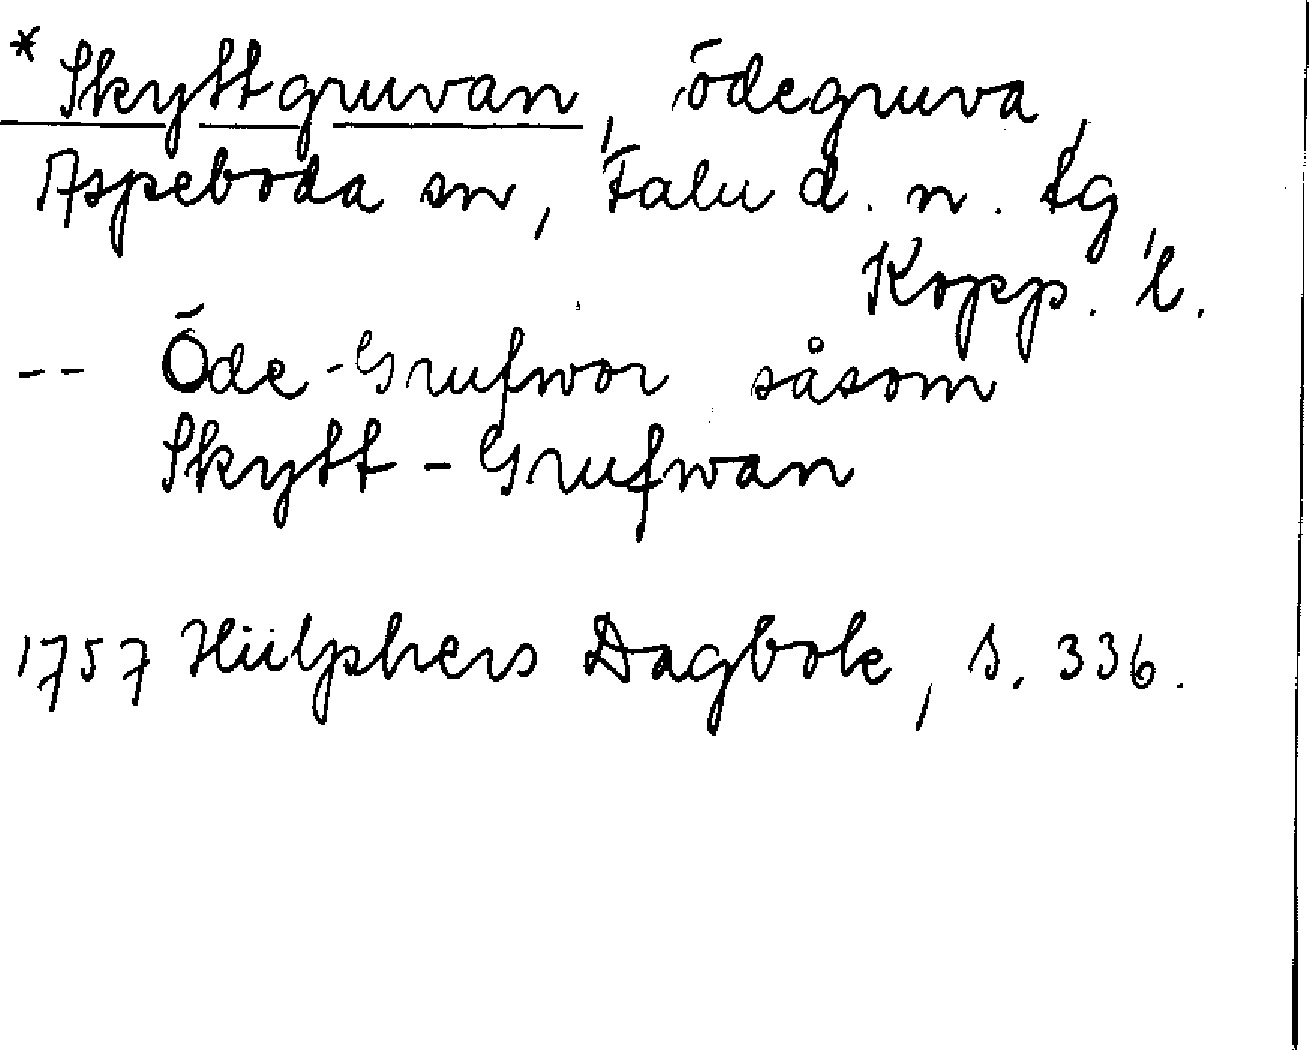 * Skyttgruvan, ödegruva,
Aspeboda sn, Falu d. n. tg
Kopp. l.
-- Öde-Grufwor såsom
Skytt-Grufwan
1757 Hülphers Dagbok, s. 336.